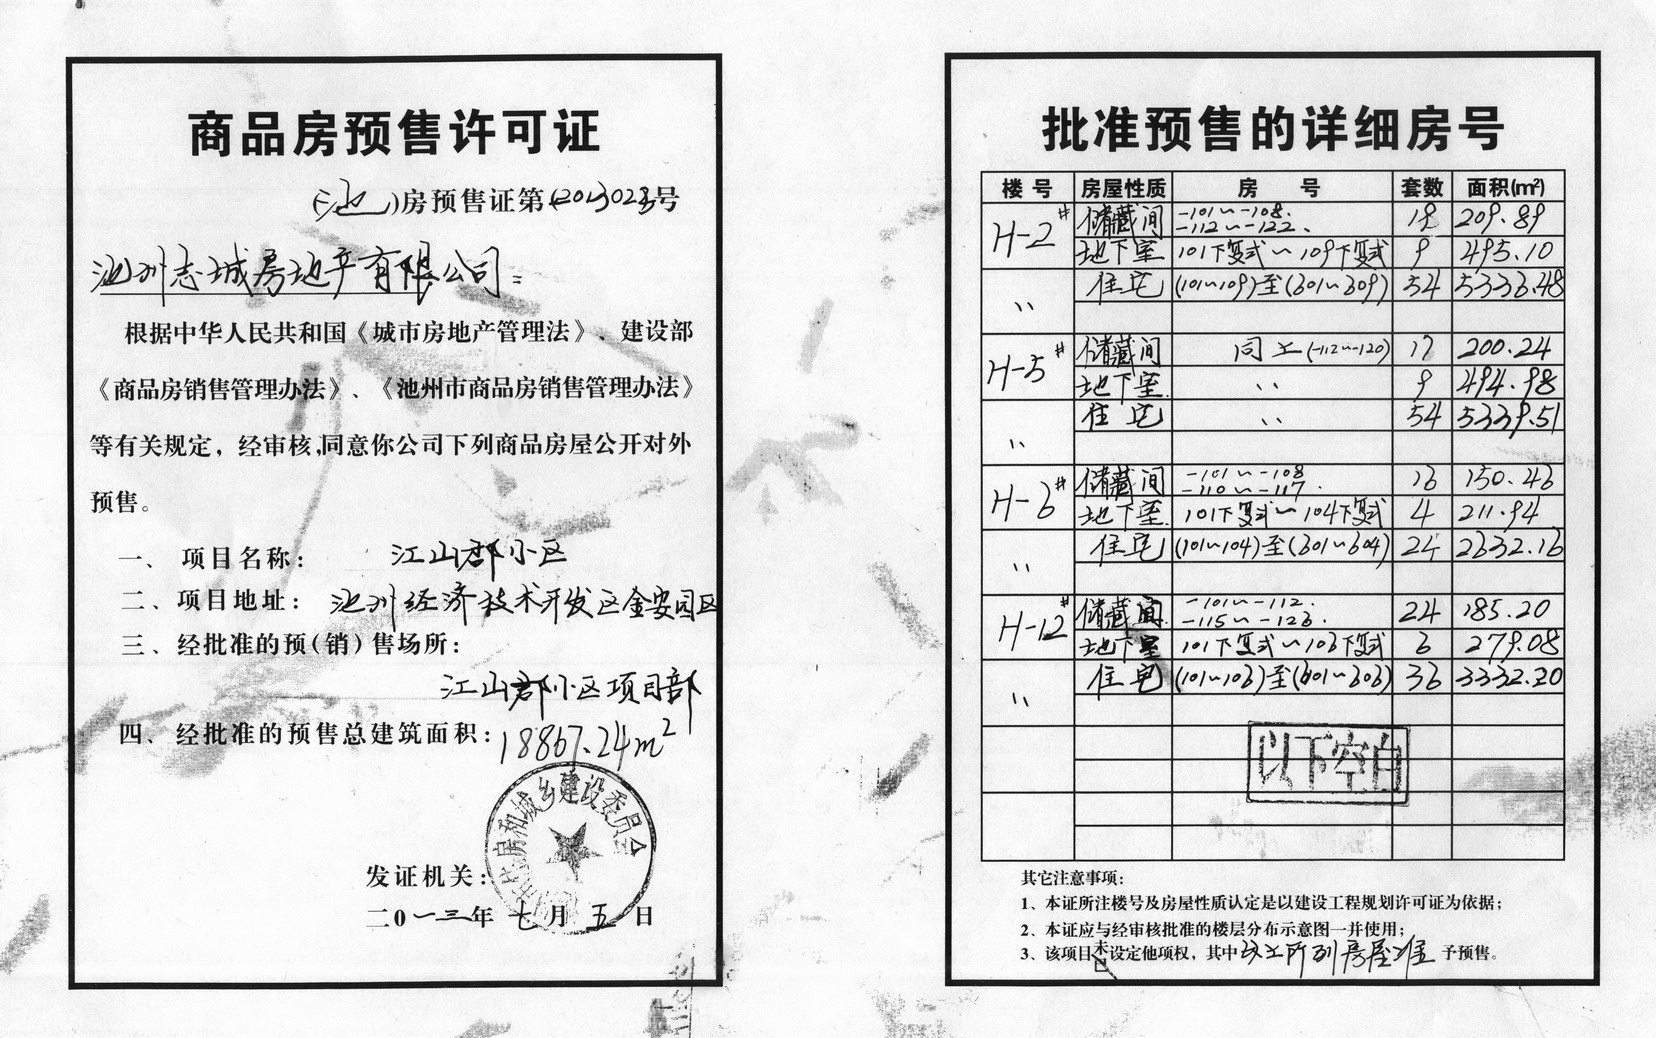 商品房预售许可证
(池)房预售证第(2013)028号
池州志城房地产有限公司:
根据中华人民共和国《城市房地产管理法》、建设部
《商品房销售管理办法》、《池州市商品房销售管理办法》
等有关规定，经审核,同意你公司下列商品房屋公开对外
预售。
一、项目名称: 江山郡小区
二、项目地址: 池州经济技术开发区金安园区
三、经批准的预(销)售场所:
江山郡小区项目部
四、经批准的预售总建筑面积: 18867.24m²
住房和城乡建设委员会
发证机关:
二0一三年七月五日
批准预售的详细房号
楼号 房屋性质 房号 套数 面积(m²)
H-2# 储藏间 -101~-108. -112~-122. 19 209.89
地下室 101下复式~109下复式 9 495.10
〃 住宅 (101~109)至(601~609) 54 5336.48
H-5# 储藏间 同上(-112~-120) 17 200.24
地下室 〃 9 494.98
〃 住宅 〃 54 5339.51
H-6# 储藏间 -101~-108 -110~-117. 16 150.46
地下室 101下复式~104下复式 4 211.94
〃 住宅 (101~104)至(601~604) 24 2632.16
H-12# 储藏间 -101~-112. -115~-126. 24 185.20
地下室 101下复式~106下复式 6 279.08
〃 住宅 (101~106)至(601~606) 36 3332.20
以下空白
其它注意事项:
1、本证所注楼号及房屋性质认定是以建设工程规划许可证为依据;
2、本证应与经审核批准的楼层分布示意图一并使用;
3、该项目未已设定他项权，其中以上所列房屋准予预售。